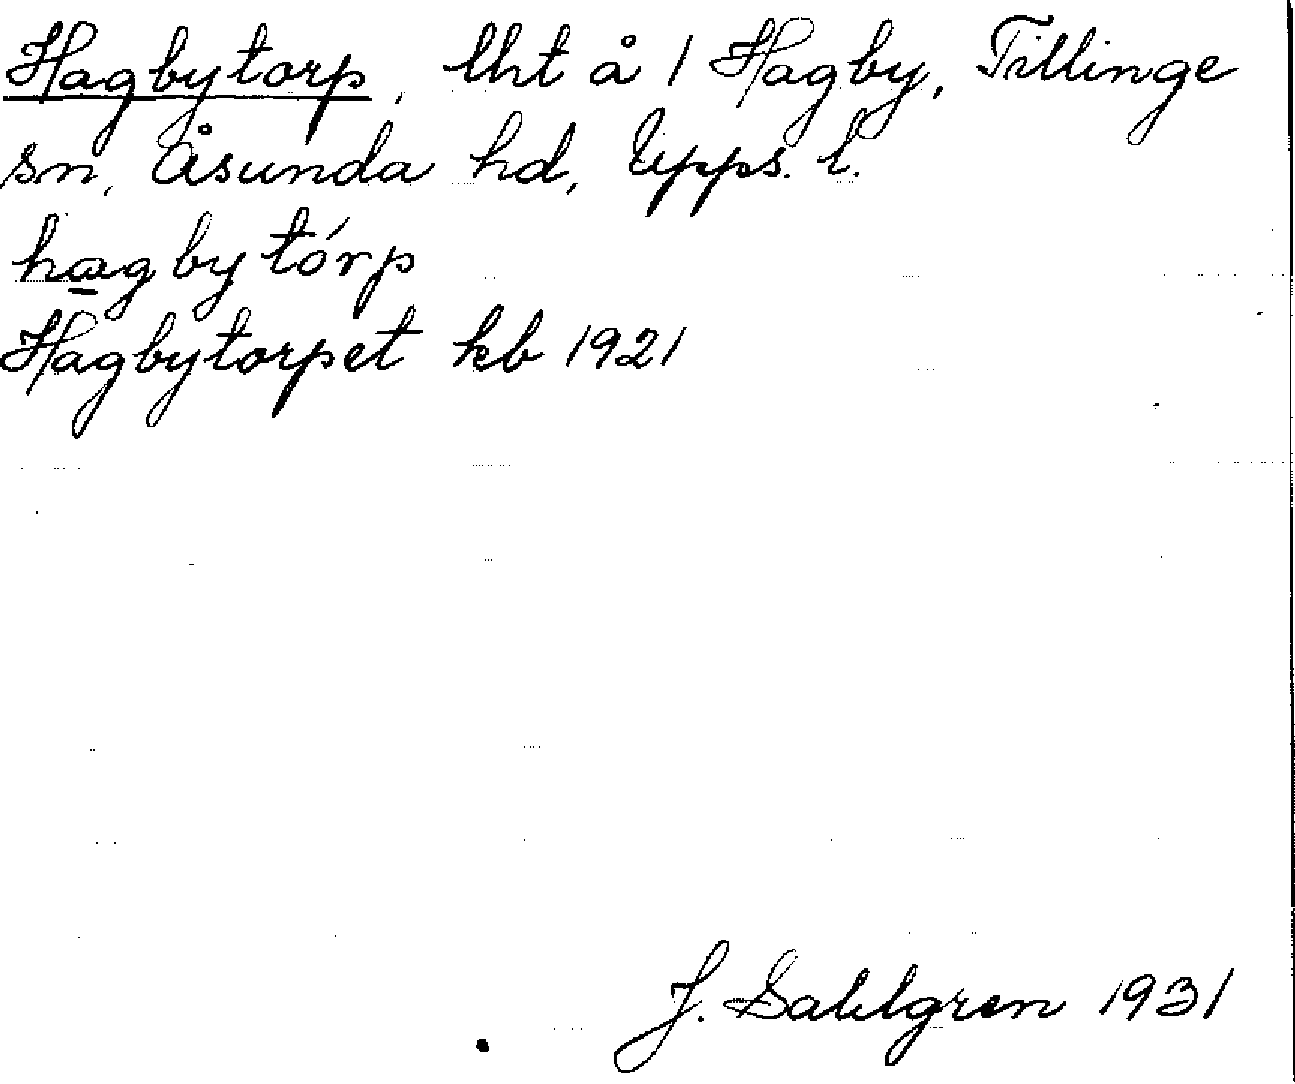 Hagbytorp, lht å 1 Hagby, Tillinge
sn, Åsunda hd, Upps. l.
hagbytórp
Hagbytorpet kb 1921
J. Sahlgren 1931